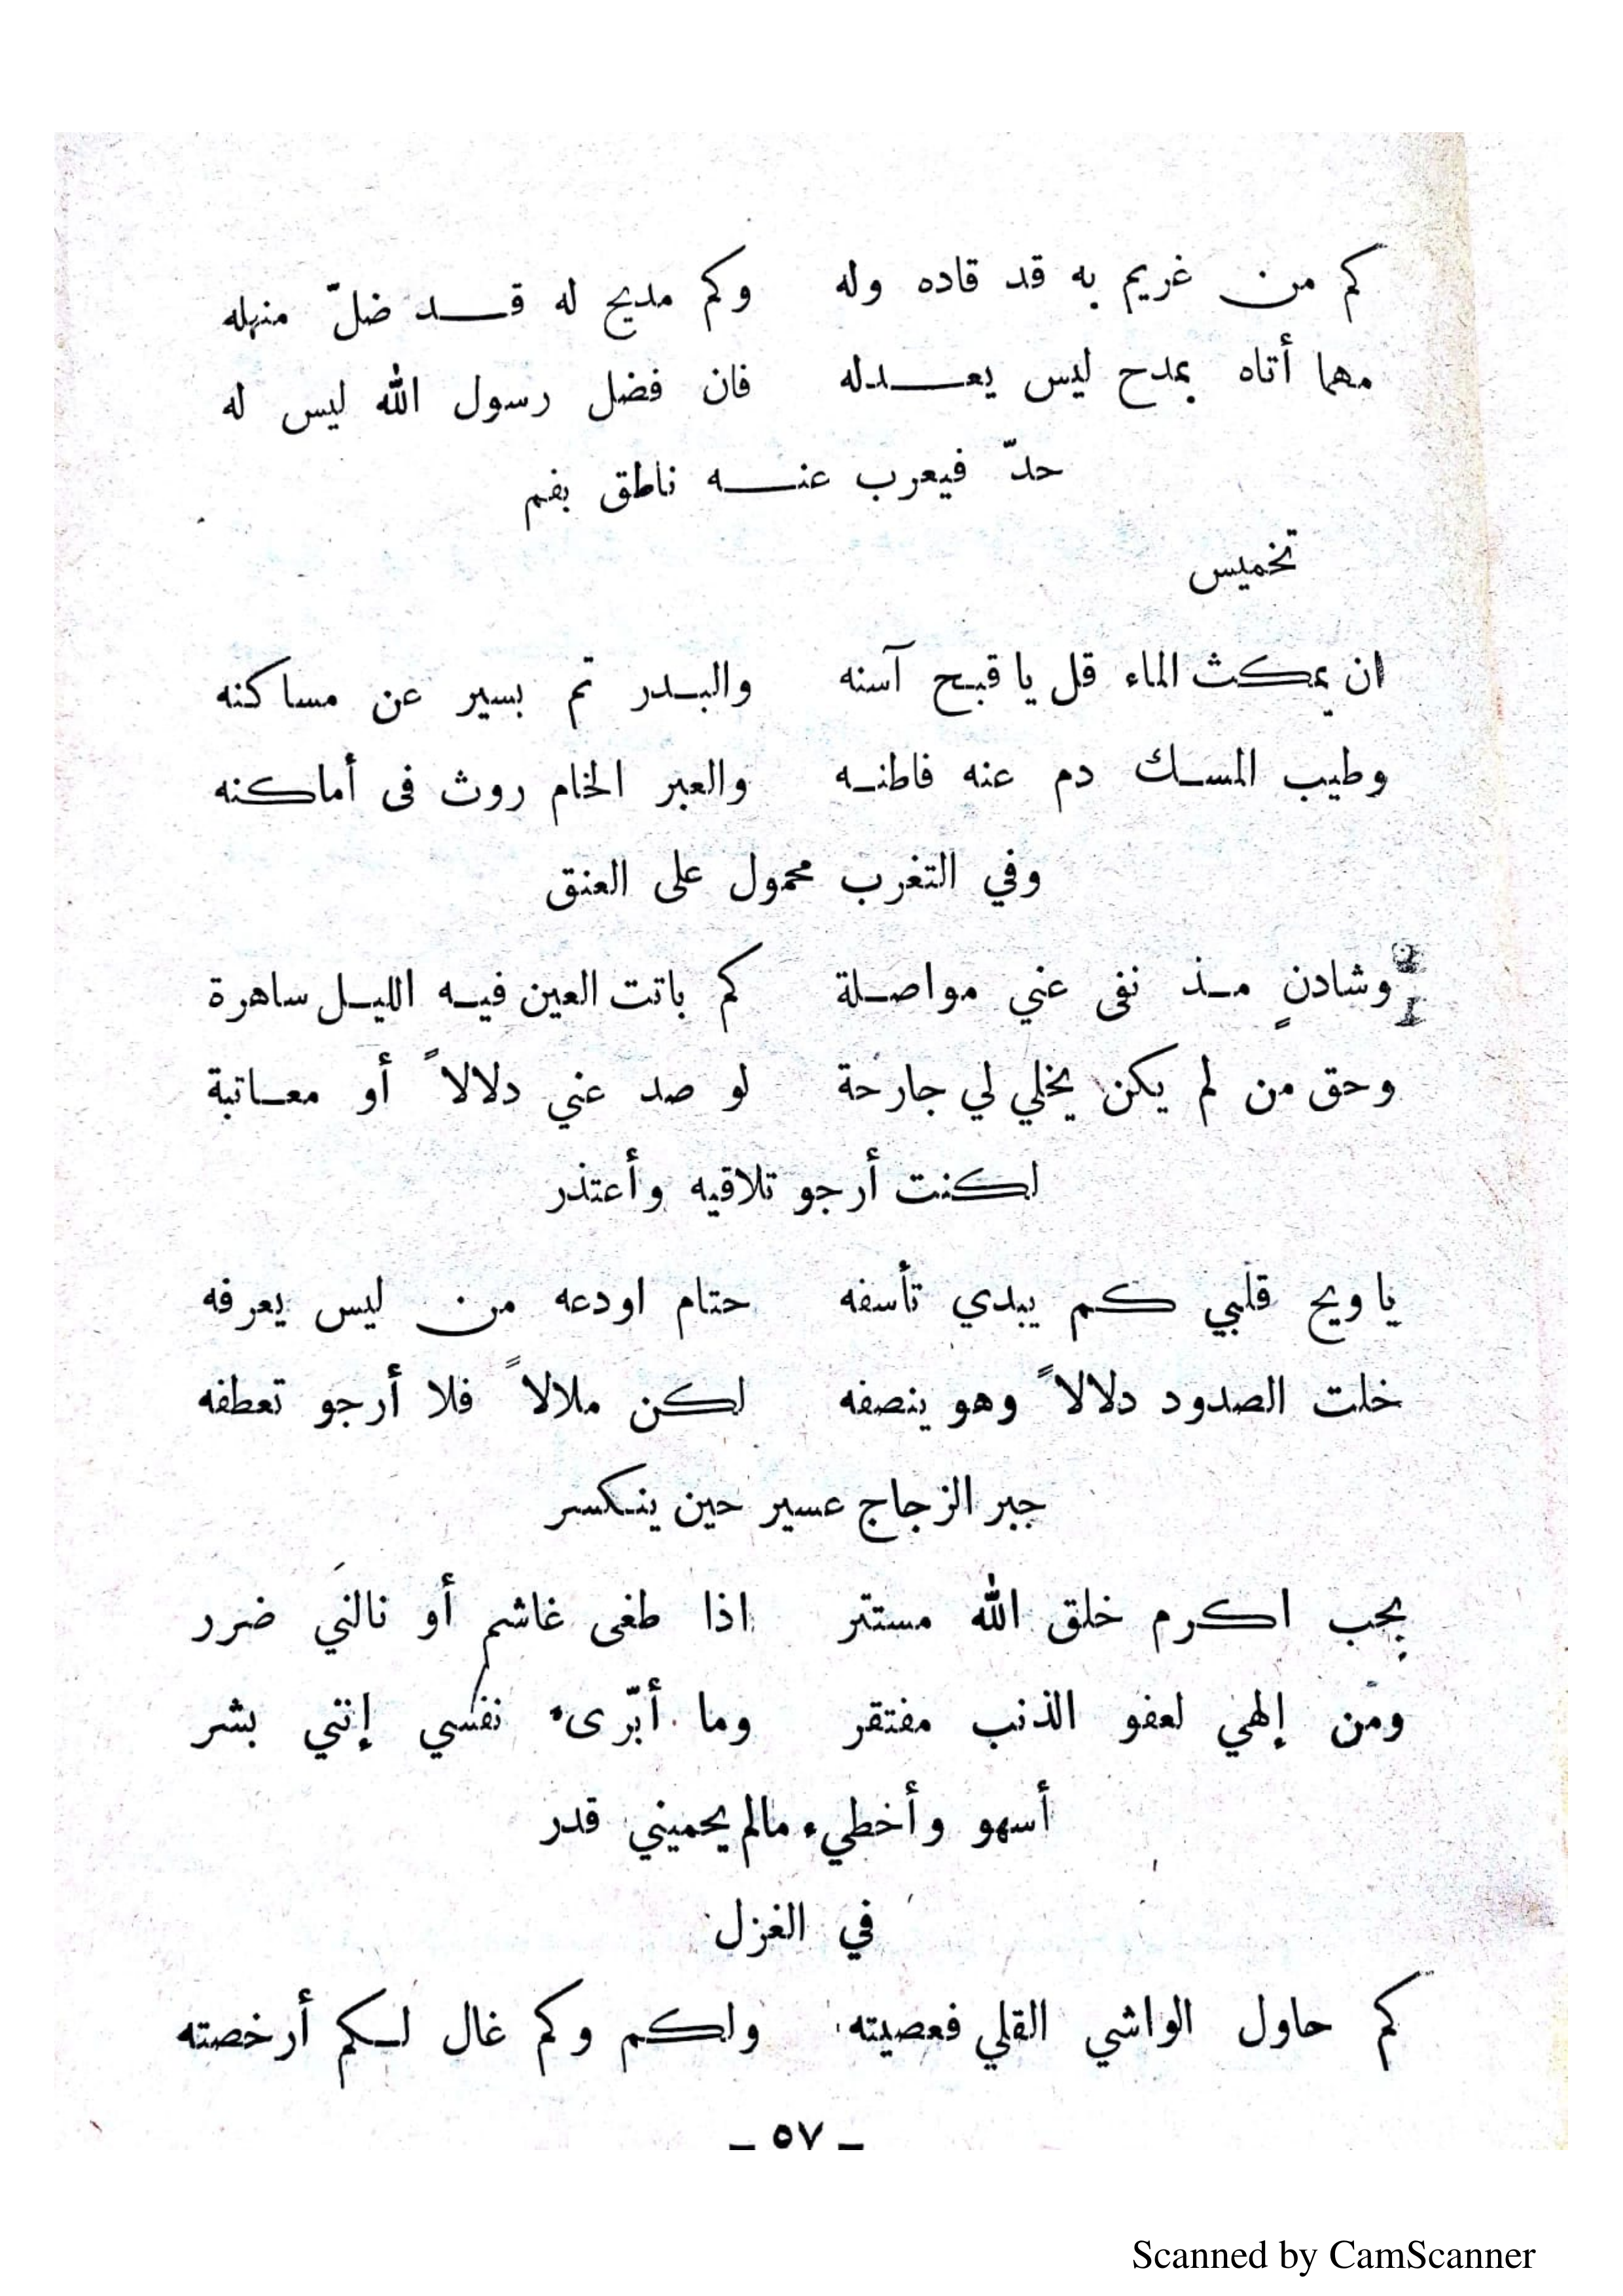 كم من غريم به قد قاده وله وكم مديح له قد ضلّ منهله
مهما أتاه بمدح ليس يعدله فان فضل رسول الله ليس له
حدّ فيعرب عنه ناطق بفم
تخميس
ان يمكث الماء قل يا قبح آسنه والبدر تم بسير عن مساكنه
وطيب المسك دم عنه فاطنه والعبر الخام روث فى أماكنه
وفي التغرب محمول على العنق
وشادنٍ مذ نفى عني مواصلة كم باتت العين فيه الليل ساهرة
وحق من لم يكن يخلي لي جارحة لو صد عني دلالاً أو معاتبة
لكنت أرجو تلاقيه وأعتذر
يا ويح قلبي كم يبدي تأسفه حتام اودعه من ليس يعرفه
خلت الصدود دلالاً وهو ينصفه لكن ملالاً فلا أرجو تعطفه
جبر الزجاج عسير حين ينكسر
بجب اكرم خلق الله مستتر اذا طغى غاشم أو نالنَي ضرر
ومن إلهي لعفو الذنب مفتقر وما أبّرىء نفسي إنني بشر
أسهو وأخطيء مالم يحميني قدر
في الغزل
كم حاول الواشي القلي فعصيته ولكم وكم غال لكم أرخصته
ـ ٥٧ ـ
Scanned by CamScanner